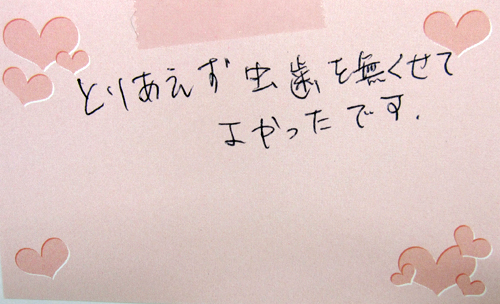 とりあえず虫歯を無くせて
よかったです.